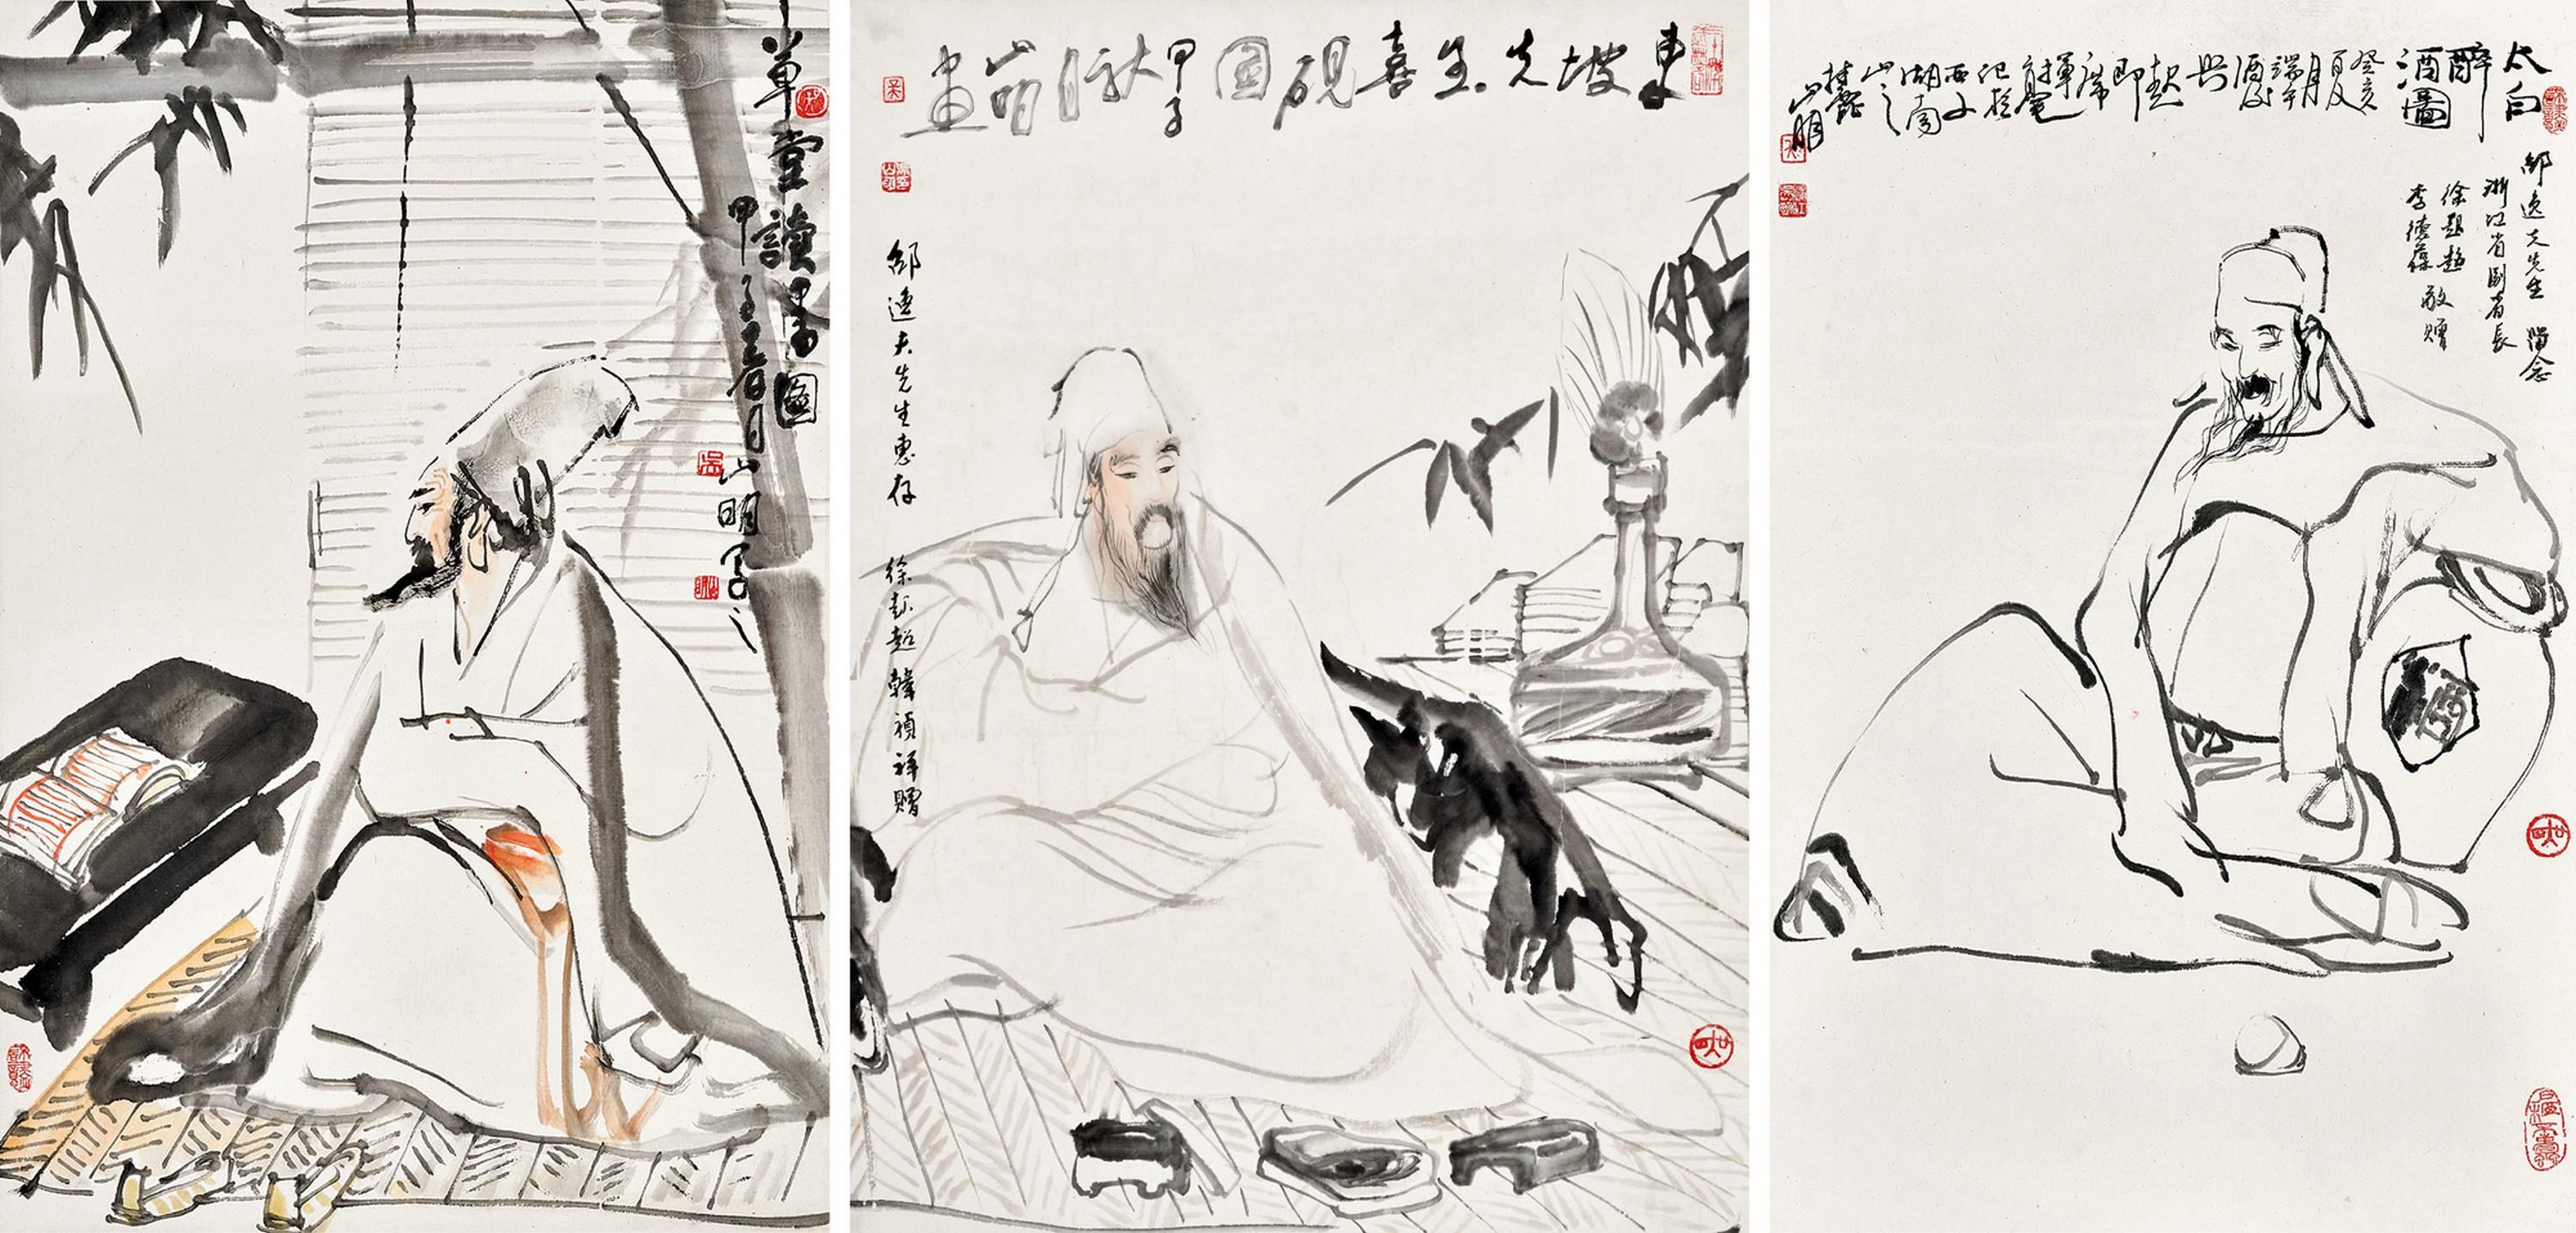 草堂讀書圖
甲子春月山明寫之
東坡先生喜硯圖甲子秋月山明畫
邵逸夫先生惠存
徐起超 韓禎祥贈
太白
醉
酒圖
癸亥
夏
月
端午
酒後
興
起
即
席
揮
毫
記於
西子
湖南
山之
山明
邵逸夫先生 留念
浙江省副省長
徐起超
李德葆 敬贈
酒